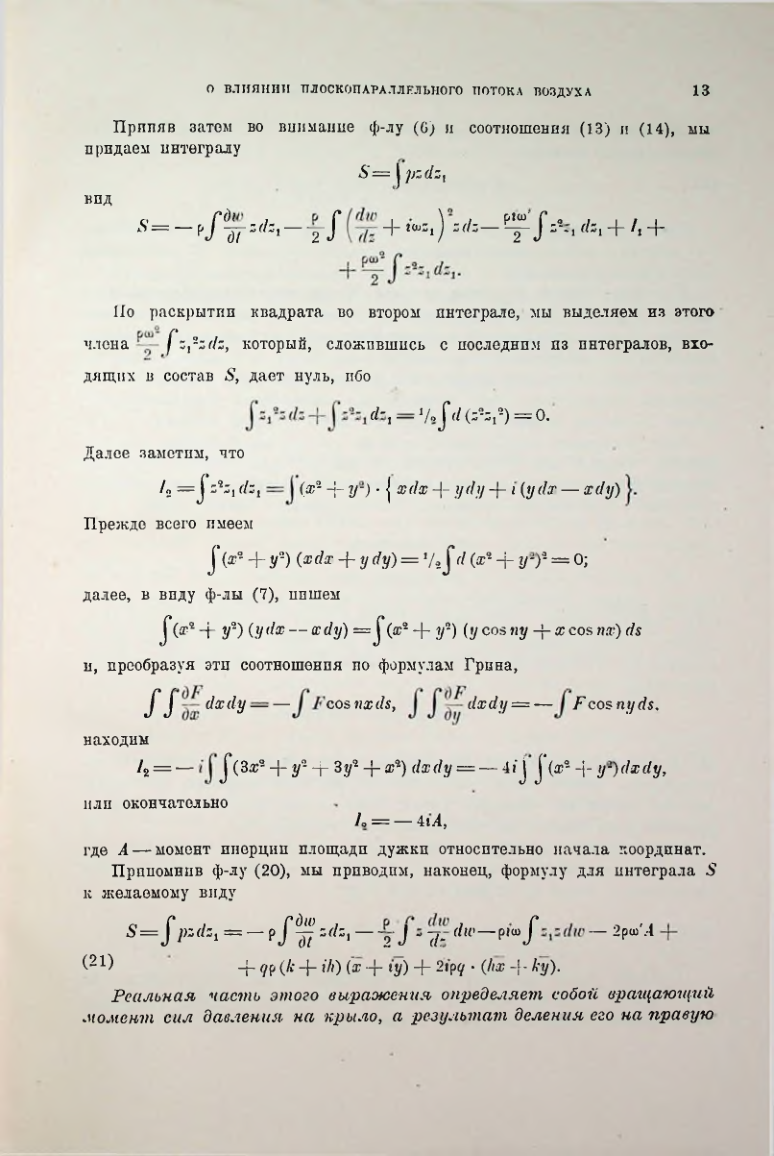 О ВЛИЯНИИ ПЛОСКОПАРАЛЛЕЛЬНОГО ПОТОКА ВОЗДУХА 13
Приняв затем во внимание ф-лу (6) и соотношения (13) и (14), мы
придаем интегралу
S = ∫ pz dz₁
вид
S = — ρ ∫ ∂w/∂t z dz₁ — ρ/2 ∫ (dw/dz + iωz₁)² z dz — ρiω′/2 ∫ z²z₁ dz₁ + I₁ +
+ ρω²/2 ∫ z²z₁ dz₁.
По раскрытии квадрата во втором интеграле, мы выделяем из этого
члена ρω²/2 ∫ z₁²z dz, который, сложившись с последним из интегралов, вхо-
дящих в состав S, дает нуль, ибо
∫ z₁²z dz + ∫ z²z₁ dz₁ = ¹/₂ ∫ d (z²z₁²) = 0.
Далее заметим, что
I₂ = ∫ z²z₁ dz₁ = ∫ (x² + y²) · { x dx + y dy + i (y dx — x dy) }.
Прежде всего имеем
∫ (x² + y²) (x dx + y dy) = ¹/₂ ∫ d (x² + y²)² = 0;
далее, в виду ф-лы (7), пишем
∫ (x² + y²) (y dx — x dy) = ∫ (x² + y²) (y cos ny + x cos nx) ds
и, преобразуя эти соотношения по формулам Грина,
∫ ∫ ∂F/∂x dx dy = — ∫ F cos nx ds, ∫ ∫ ∂F/∂y dx dy = — ∫ F cos ny ds.
находим
I₂ = — i ∫ ∫ (3x² + y² + 3y² + x²) dx dy = — 4i ∫ ∫ (x² + y²) dx dy,
или окончательно
I₂ = — 4iA,
где A — момент инерции площади дужки относительно начала координат.
Припомнив ф-лу (20), мы приводим, наконец, формулу для интеграла S
к желаемому виду
S = ∫ pz dz₁ = — ρ ∫ ∂w/∂t z dz₁ — ρ/2 ∫ z dw/dz dw — ρiω ∫ z₁z dw — 2ρω′A +
(21) + qρ (k + ih) (x̄ + iȳ) + 2iρq · (hx̄ + kȳ).
Реальная часть этого выражения определяет собой вращающий
момент сил давления на крыло, а результат деления его на правую